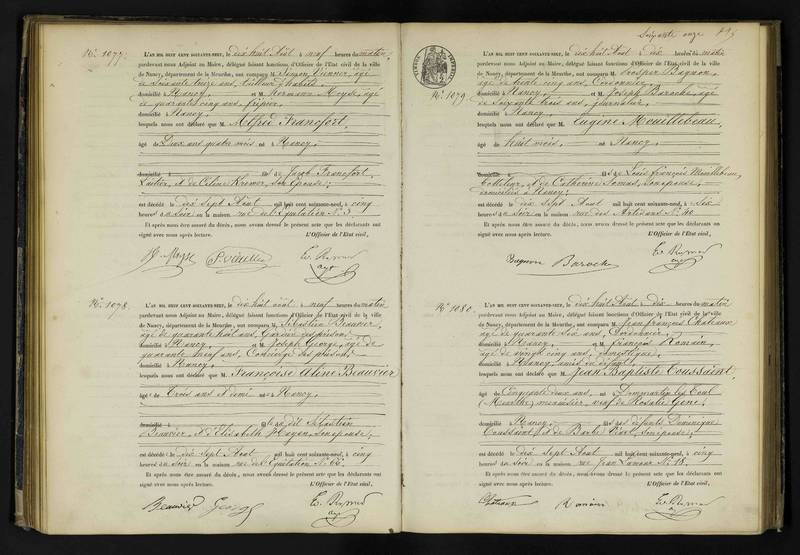 N.° 1077.
L'AN MIL HUIT CENT SOIXANTE-NEUF, le dix huit Août à neuf heures du matin,
pardevant nous Adjoint au Maire, délégué faisant fonctions d'Officier de l'État civil de la ville
de Nancy, département de la Meurthe, ont comparu M. Simon âgé
de soixante ans, Tailleur d'habits,
domicilié à Nancy, et M. Hermann âgé
de quarante cinq ans, fripier,
domicilié à Nancy,
lesquels nous ont déclaré que M. Alfred Francfort,
âgé de Deux ans quatre mois né à Nancy,
domicilié à fils de Jacob Francfort,
et de Céline son épouse;
est décédé le dix sept Août mil huit cent soixante-neuf, à cinq
heures du soir en la maison rue de l'Équitation N.° 3.
Et après nous être assuré du décès, nous avons dressé le présent acte que les déclarants ont
signé avec nous après lecture.
L'Officier de l'État civil,
N.° 1078.
L'AN MIL HUIT CENT SOIXANTE-NEUF, le dix huit août à neuf heures du matin
pardevant nous Adjoint au Maire, délégué faisant fonctions d'Officier de l'État civil de la ville
de Nancy, département de la Meurthe, ont comparu M. Sébastien Beauvier,
âgé de quarante huit ans, Gardien des prisons,
domicilié à Nancy, et M. Joseph George, âgé de
quarante neuf ans, Concierge des prisons,
domicilié à Nancy,
lesquels nous ont déclaré que Françoise Aline Beauvier
âgée de Trois ans et demi née à Nancy,
domiciliée à fille du dit Sébastien
Beauvier, et d'Elisabeth Hazen, son épouse,
est décédée le dix sept Août mil huit cent soixante-neuf, à cinq
heures du soir en la maison rue de l'Équitation N.°
Et après nous être assuré du décès, nous avons dressé le présent acte que les déclarants ont
signé avec nous après lecture.
L'Officier de l'État civil,
Beauvier George
Soixante onze
N.° 1079.
L'AN MIL HUIT CENT SOIXANTE-NEUF, le dix huit Août à dix heures du matin
pardevant nous Adjoint au Maire, délégué faisant fonctions d'Officier de l'État civil de la ville
de Nancy, département de la Meurthe, ont comparu M. Prosper Bagnon,
âgé de trente cinq ans, Cordonnier,
domicilié à Nancy, et M. Joseph Baroche, âgé
de soixante trois ans, journalier,
domicilié à Nancy,
lesquels nous ont déclaré que M. Eugène Mouillebeau,
âgé de huit mois, né à Nancy,
domicilié fils de Louis François Mouillebeau,
et de Catherine Somas, son épouse,
domiciliés à Nancy;
est décédé le dix sept Août mil huit cent soixante-neuf, à six
heures du soir en la maison rue des Artisans N.° 40
Et après nous être assuré du décès, nous avons dressé le présent acte que les déclarants ont
signé avec nous après lecture.
L'Officier de l'État civil,
Bagnon Baroche
N.° 1080.
L'AN MIL HUIT CENT SOIXANTE-NEUF, le dix huit Août à dix heures du matin
pardevant nous Adjoint au Maire, délégué faisant fonctions d'Officier de l'État civil de la ville
de Nancy, département de la Meurthe, ont comparu M. Jean François Chateaux
âgé de quarante six ans, Cordonnier,
domicilié à Nancy, et M. François Romain,
âgé de vingt cinq ans, domestique,
domicilié à Nancy, amis du défunt
lesquels nous ont déclaré que M. Jean Baptiste Toussaint,
âgé de Cinquante deux ans, né à Dommartin les Toul
(Meurthe) menuisier, veuf de Rosalie
domicilié à Nancy, fils des défunts Dominique
Toussaint, et de Barbe son épouse;
est décédé le dix sept Août mil huit cent soixante-neuf, à cinq
heures du soir en la maison rue Jean Lamour N.° 18.
Et après nous être assuré du décès, nous avons dressé le présent acte que les déclarants ont
signé avec nous après lecture.
L'Officier de l'État civil,
Chateaux Romain